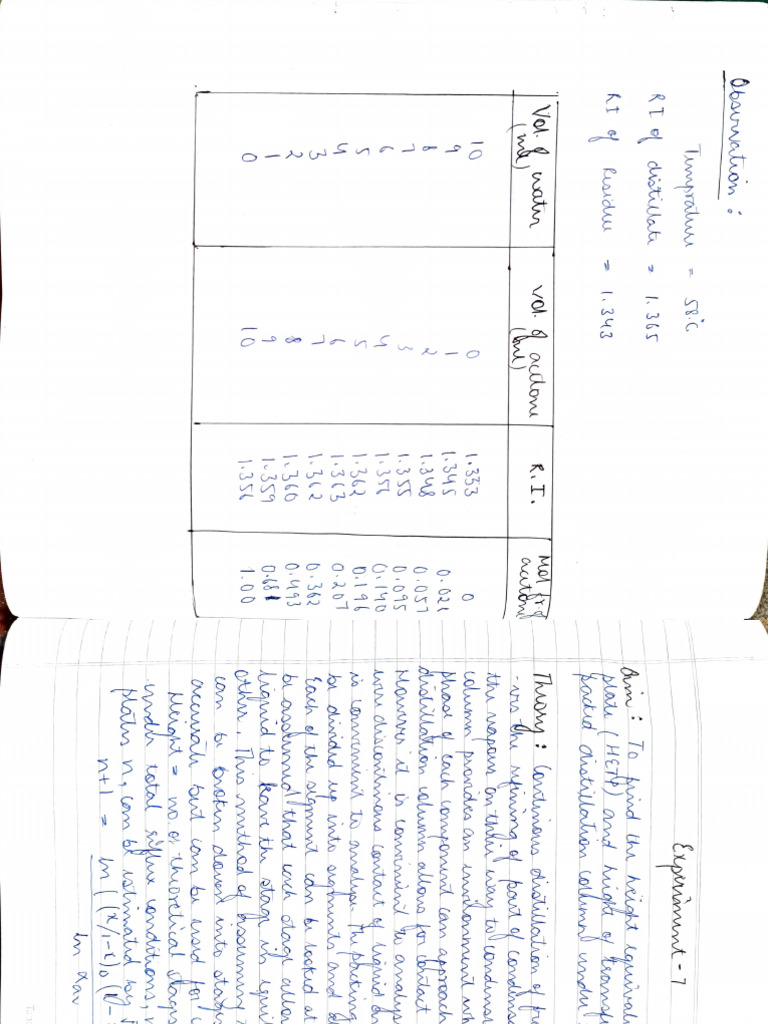 Observation :
Temprature = 58°C
RI of distillate = 1.365
RI of Residue = 1.343
Vol. of water (ml) Vol. of acetone (ml) R.I. Mol fr. of aceton
10 0 1.333 0
9 1 1.345 0.026
8 2 1.348 0.057
7 3 1.355 0.095
6 4 1.356 0.140
5 5 1.362 0.196
4 6 1.363 0.207
3 7 1.362 0.362
2 8 1.360 0.493
1 9 1.359 0.681
0 10 1.356 1.00
Experiment - 7
Aim : To find the height equival
plate (HETP) and height of transf
packed distillation column under
Theory : Continious distillation of
the refining of part of condens
the vapour on their way to condens
column provides an environment wh
phase of each component can approach
distillation column allows for contact
However it is convinient to analys
discontinious contact of liquid
is convinient to analyse the packing
be divided up into segments and
Each of the segment can be looked at
be assumed that each stage allow
liquid to leave the stage in equil
other. This method of assuming
can be broken down into stage
accurate but can be used for
Height = no of theoretical stages
under total reflux conditions,
plates n, can be estimated by,
n+1 = ln((x/1-x)D (1-
ln αav